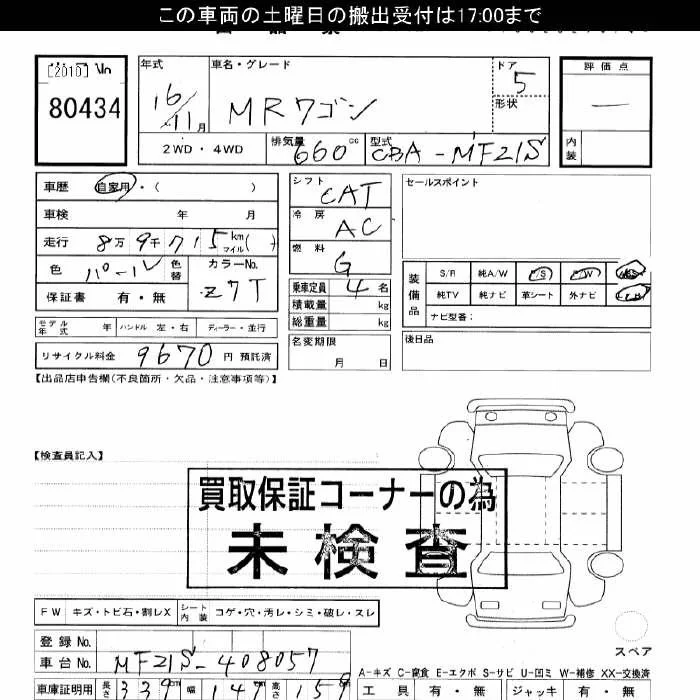 この車両の土曜日の搬出受付は17:00まで
[2010] No
80434
年式
16/11月
車名・グレード
MRワゴン
ドア
5
形状
評価点
—
内装
2WD・4WD
排気量
660cc
型式
CBA-MF21S
車歴 自家用・( )
車検 年 月
走行 8万9千715 km マイル( )
色 パール 色替
カラーNo.
Z7T
保証書 有・無
モデル年式 年 ハンドル 左・右 ディーラー・並行
リサイクル料金 9670円 預託済
シフト
CAT
冷房
AC
燃料
G
乗車定員 4名
積載量 kg
総重量 kg
名変期限
月 日
セールスポイント
装備品
S/R 純A/W P/S P/W ABS
純TV 純ナビ 革シート 外ナビ
ナビ型番:
後日品
【出品店申告欄(不良箇所・欠品・注意事項等)】
【検査員記入】
買取保証コーナーの為
未検査
FW キズ・トビ石・割レX シート内装 コゲ・穴・汚レ・シミ・破レ・スレ
登録No.
車台No. MF21S-408057
車庫証明用 長さ 339cm 幅 147cm 高さ 159
スペア
A-キズ C-腐食 E-エクボ S-サビ U-凹ミ W-補修 XX-交換済
工具 有・無 ジャッキ 有・無